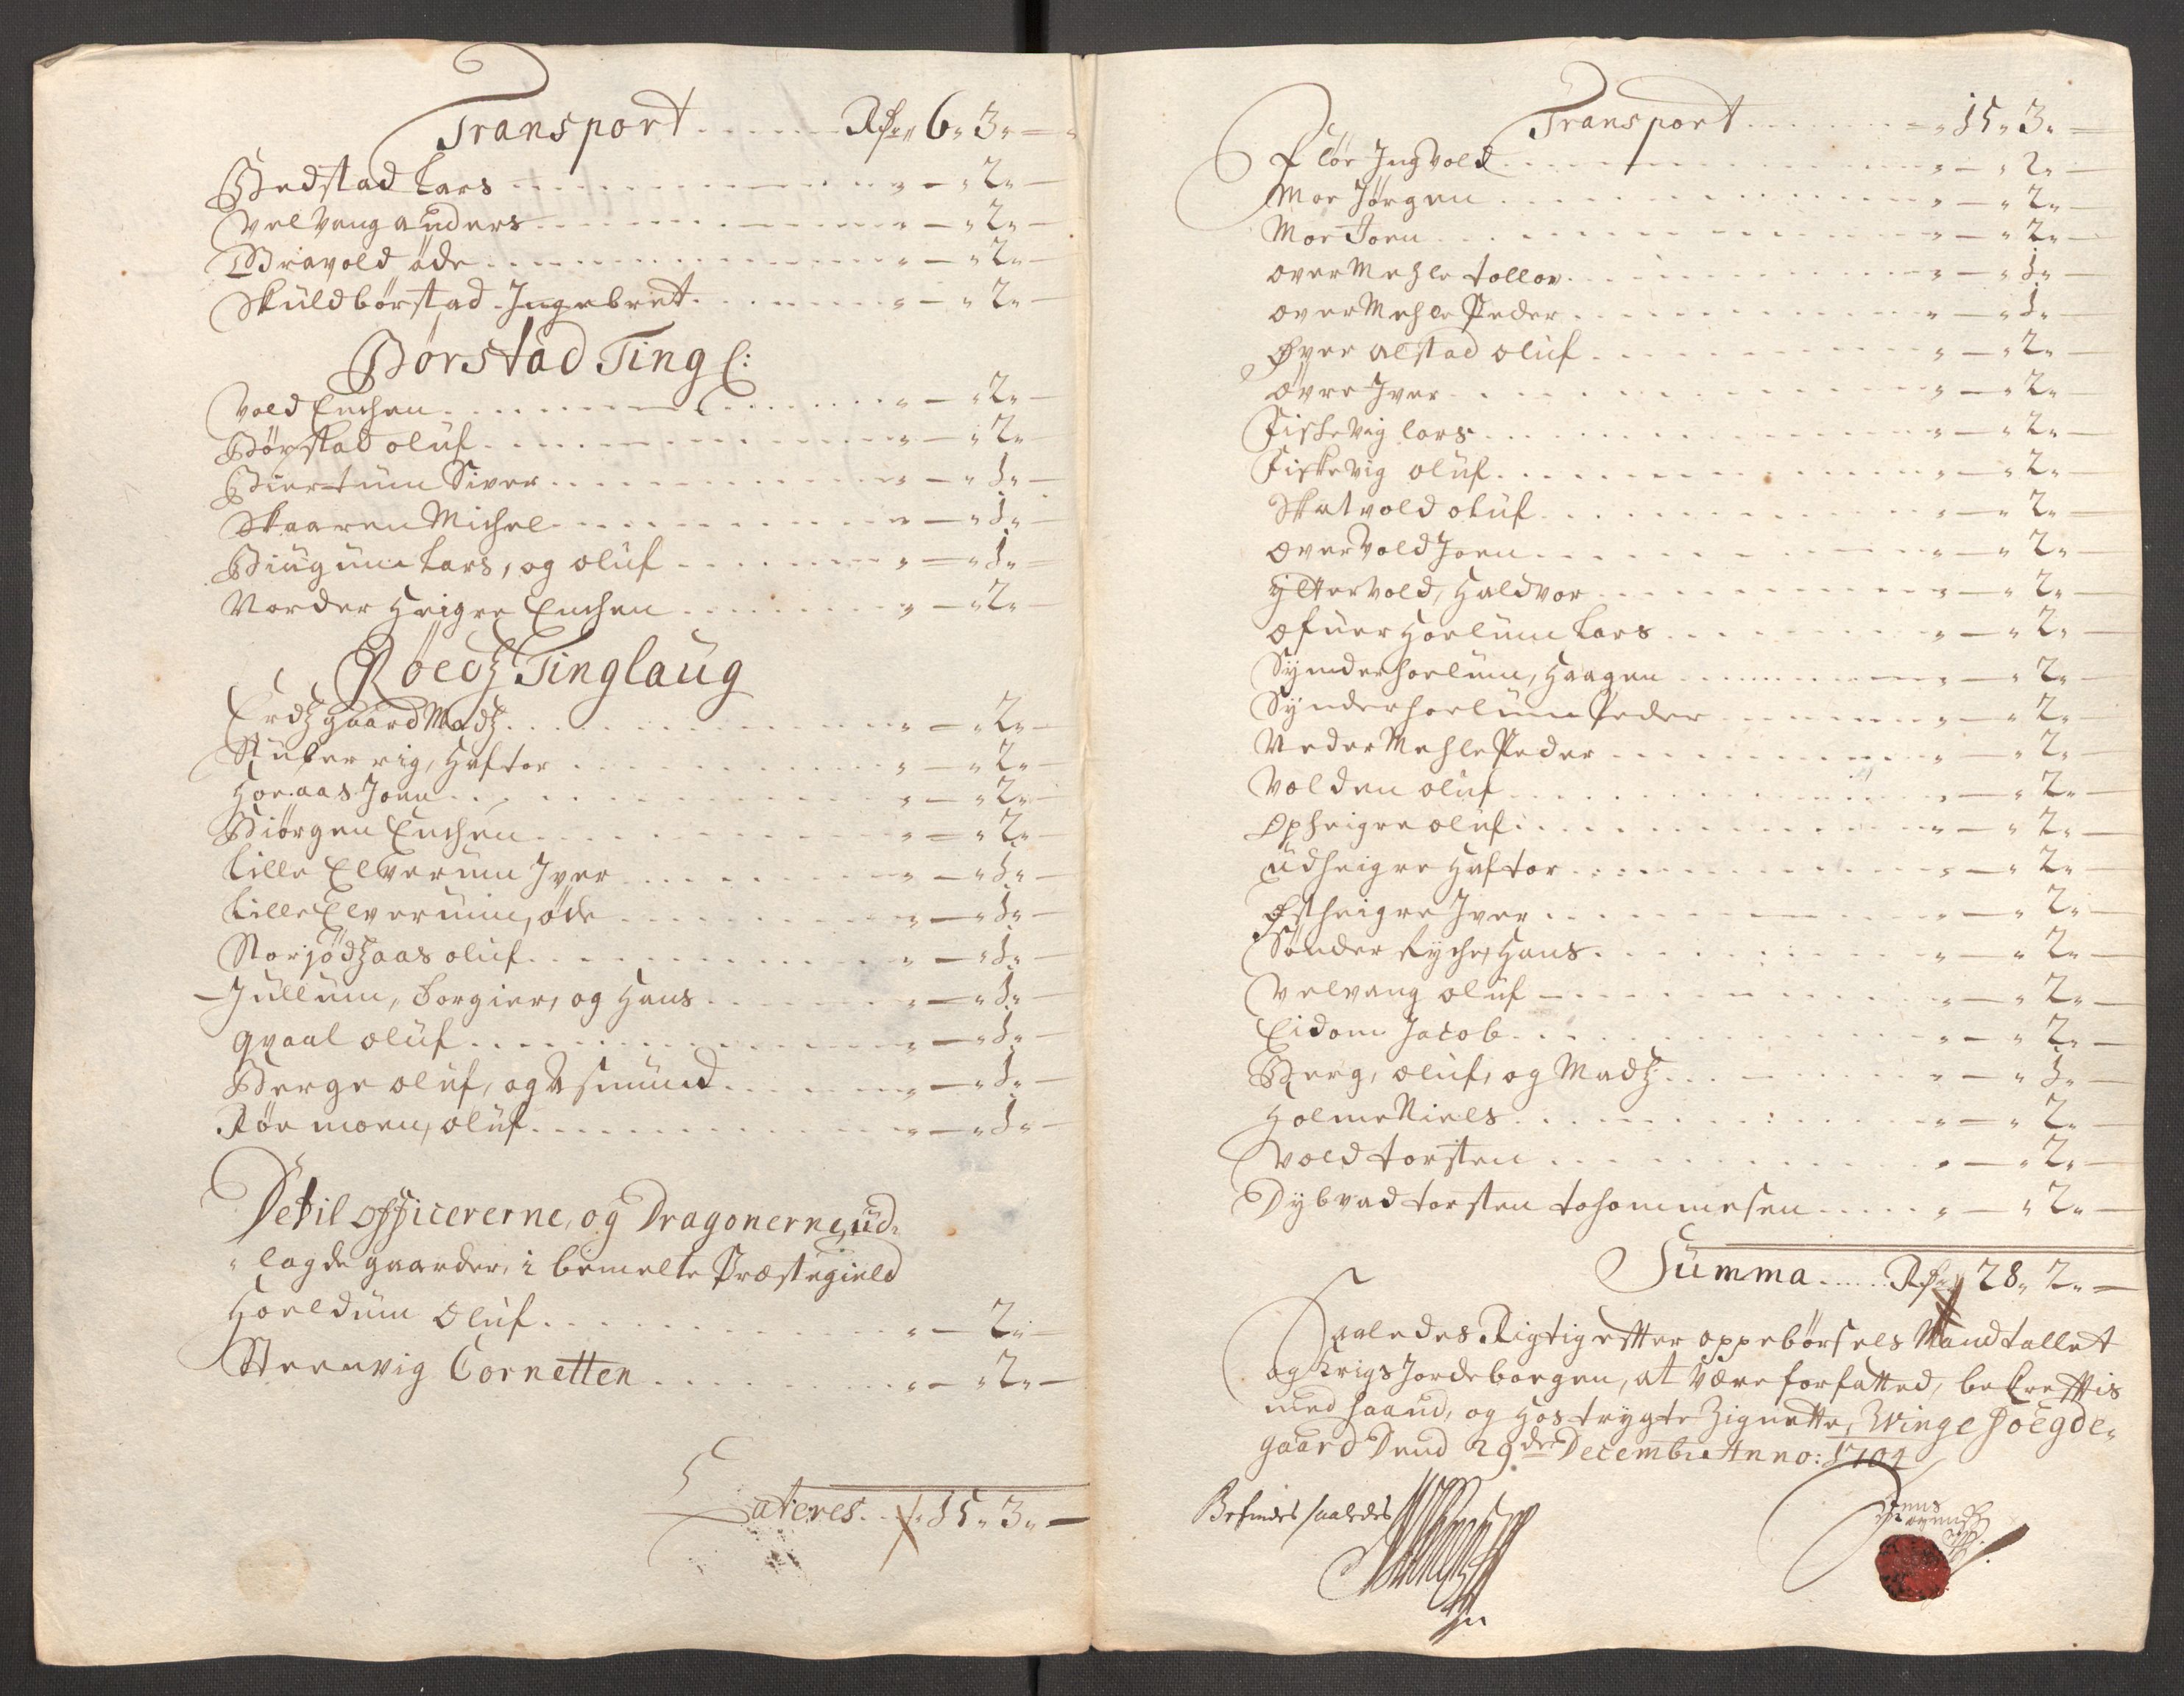 Transport ..... Rdr 6„ 3„ —
Bedstad Lars ..... „ — „ 2„ —
Velvang anders ..... „ — „ 2„ —
Bravold öde ..... „ — „ 2„ —
Skuldbörstad Ingebret ..... „ — „ 2„ —
Börstad Ting l:
Vold Enchen ..... „ — „ 2„ —
Börstad oluf ..... „ — „ 2„
Biertum Siver ..... „ — „ 1„ —
Skaaren Michel ..... „ — „ 1„ —
Biugum Lars, og oluf ..... „ — „ 1„ —
Norder Heigre Enchen ..... „ — „ 2„ —
Röedz Tinglaug
Erdzgaard Madz ..... „ — „ 2„ —
Haftor ..... „ — „ 2„ —
Horaas Joen ..... „ — „ 2„ —
Biörgen Enchen ..... „ — „ 2„
Lille Elverum Iver ..... „ — „ 1„ —
Lille Elverum, öde ..... „ — „ 1„ —
oluf ..... „ — „ 1„ —
Jullum, Torgier, og Hans ..... „ — „ 1„ —
qvaal oluf ..... „ — „ 1„ —
Berge oluf, og Asmund ..... „ — „ 1„ —
Rörmoen, oluf ..... „ — „ 1„ —
De til officererne, og Dragonerne, ud„
„ lagde gaarder, i bemelte Præstegield
Hoeldum Oluf ..... „ — 2„ —
Steenvig Cornetten ..... „ — „ 2„ —
Lateres ... 15„ 3„ —
Transport ..... „ 15„ 3„ —
Flör Ingvold ..... „ — „ 2„ —
Mor Jörgen ..... „ — „ 2„ —
Mor Joen ..... „ — „ 2„ —
over Mehle tollov ..... „ — „ 1„ —
over Mehle Peder ..... „ — „ 1„ —
Över alstad oluf ..... „ — „ 2„ —
övre Iver ..... „ — „ 2„ —
Fiskevig lars ..... „ — „ 2„ —
Fiskevig oluf ..... „ — „ 2„ —
Skatvold oluf ..... „ — „ 2„ —
overvold Joen ..... „ — „ 2„ —
yttervold, Haldvor ..... „ — „ 2„ —
öfuer Hoelum Lars ..... „ — „ 2„ —
Synderhoelum, Haagen ..... „ — „ 2„ —
Synderhoelum Peder ..... „ — „ 2„ —
Neder Mehle Peder ..... „ — „ 2„ —
Volden oluf ..... „ — „ 2„ —
Opheigre oluf ..... „ — „ 2„ —
udheigre Haftor ..... „ — „ 2„ —
Östheigre Iver ..... „ — „ 2„ —
Sönder Ryche, Hans ..... „ — „ 2„ —
Velvang oluf ..... „ — „ 2„ —
Eidom Jacob ..... „ — „ 2„ —
Berg, oluf, og Madz ..... „ — „ 1„ —
Holme Niels ..... „ — „ 2„ —
Vold torsten ..... „ — „ 2„ —
Dybvad torsten tohommesen ..... „ — „ 2„ —
Summa ..... Rdr 28„ 2„ —
Saaledes Rigtig efter oppebörsels Mandtallet
og Krigs Jordebogen, at være forfatted, bekreftis
med haand, og Hostrygte Zignette, Winge Foegde„
gaard Dend 29de Decembr Anno: 1704
Befindes saaledes
Jens